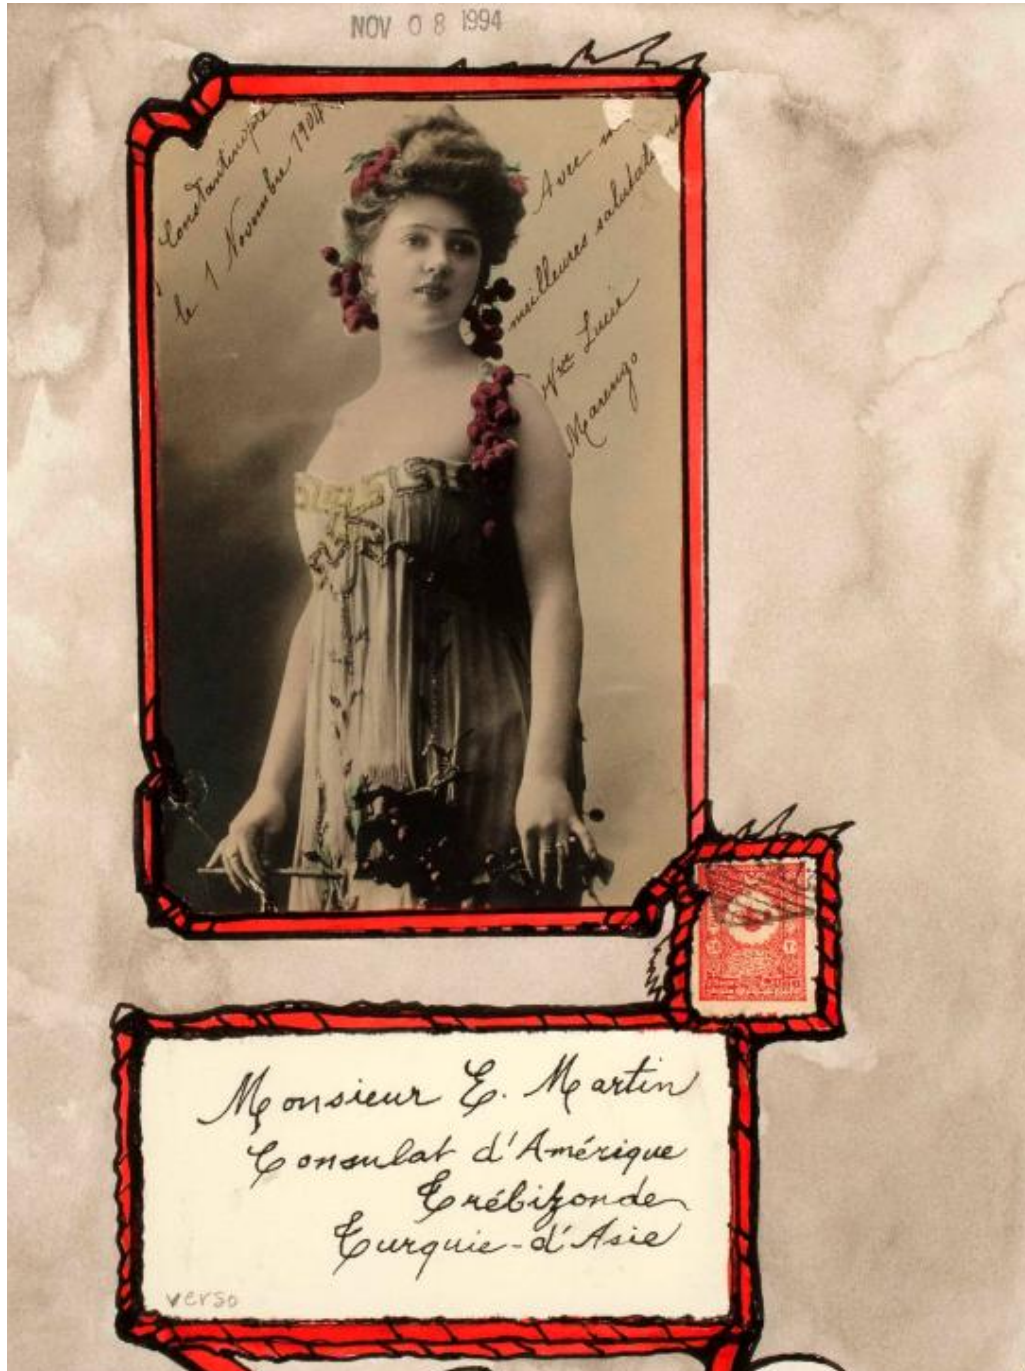 NOV 08 1994
Constantinople
le 1 Novembre 1904
Avec
meilleures salutations
Lucie
Marengo
Monsieur E. Martin
Consulat d'Amérique
Trébizonde
Turquie-d'Asie
verso